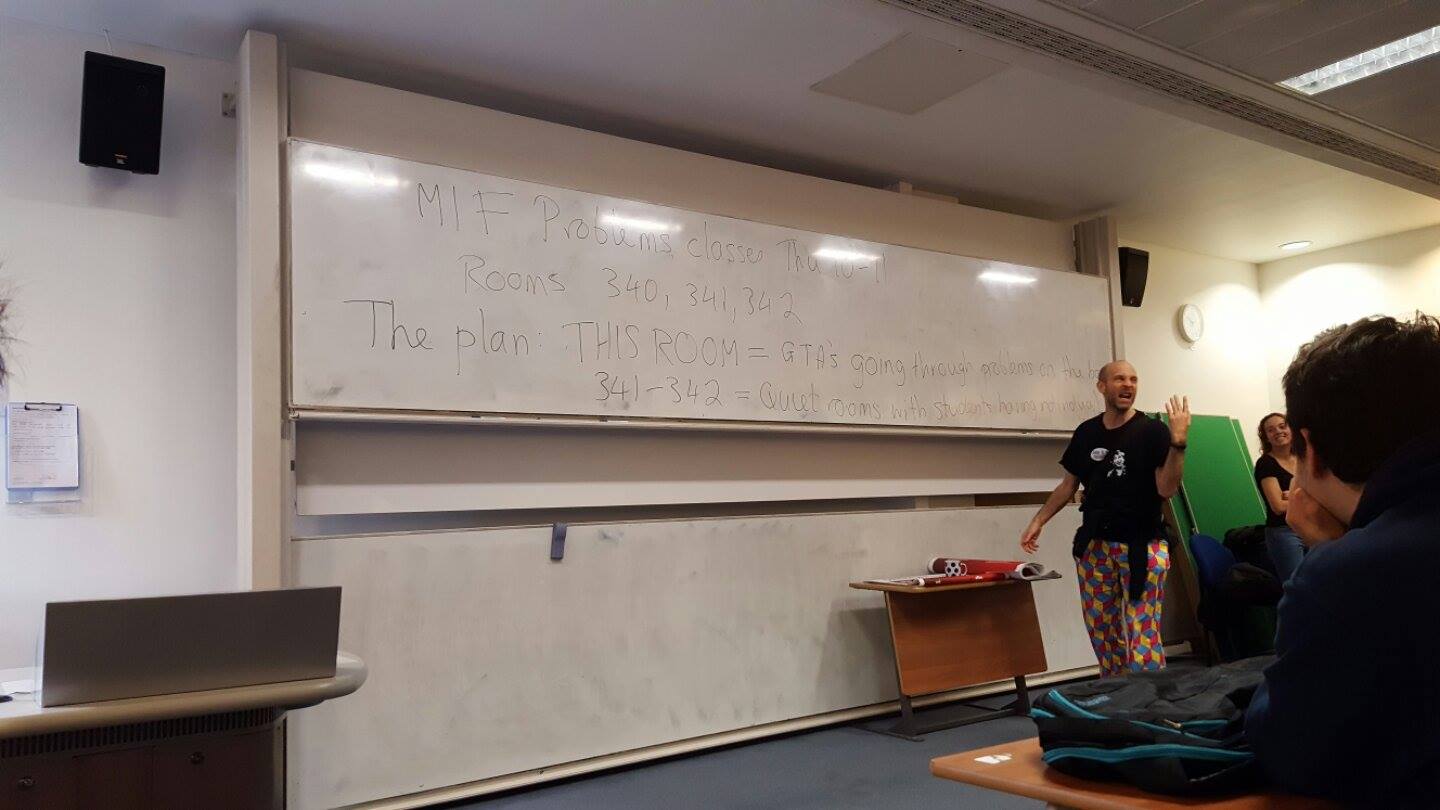 MIF Problems classes Thu 10-11
Rooms 340, 341, 342
The plan: THIS ROOM = GTA's going through problems on the
341-342 = Quiet rooms with students having